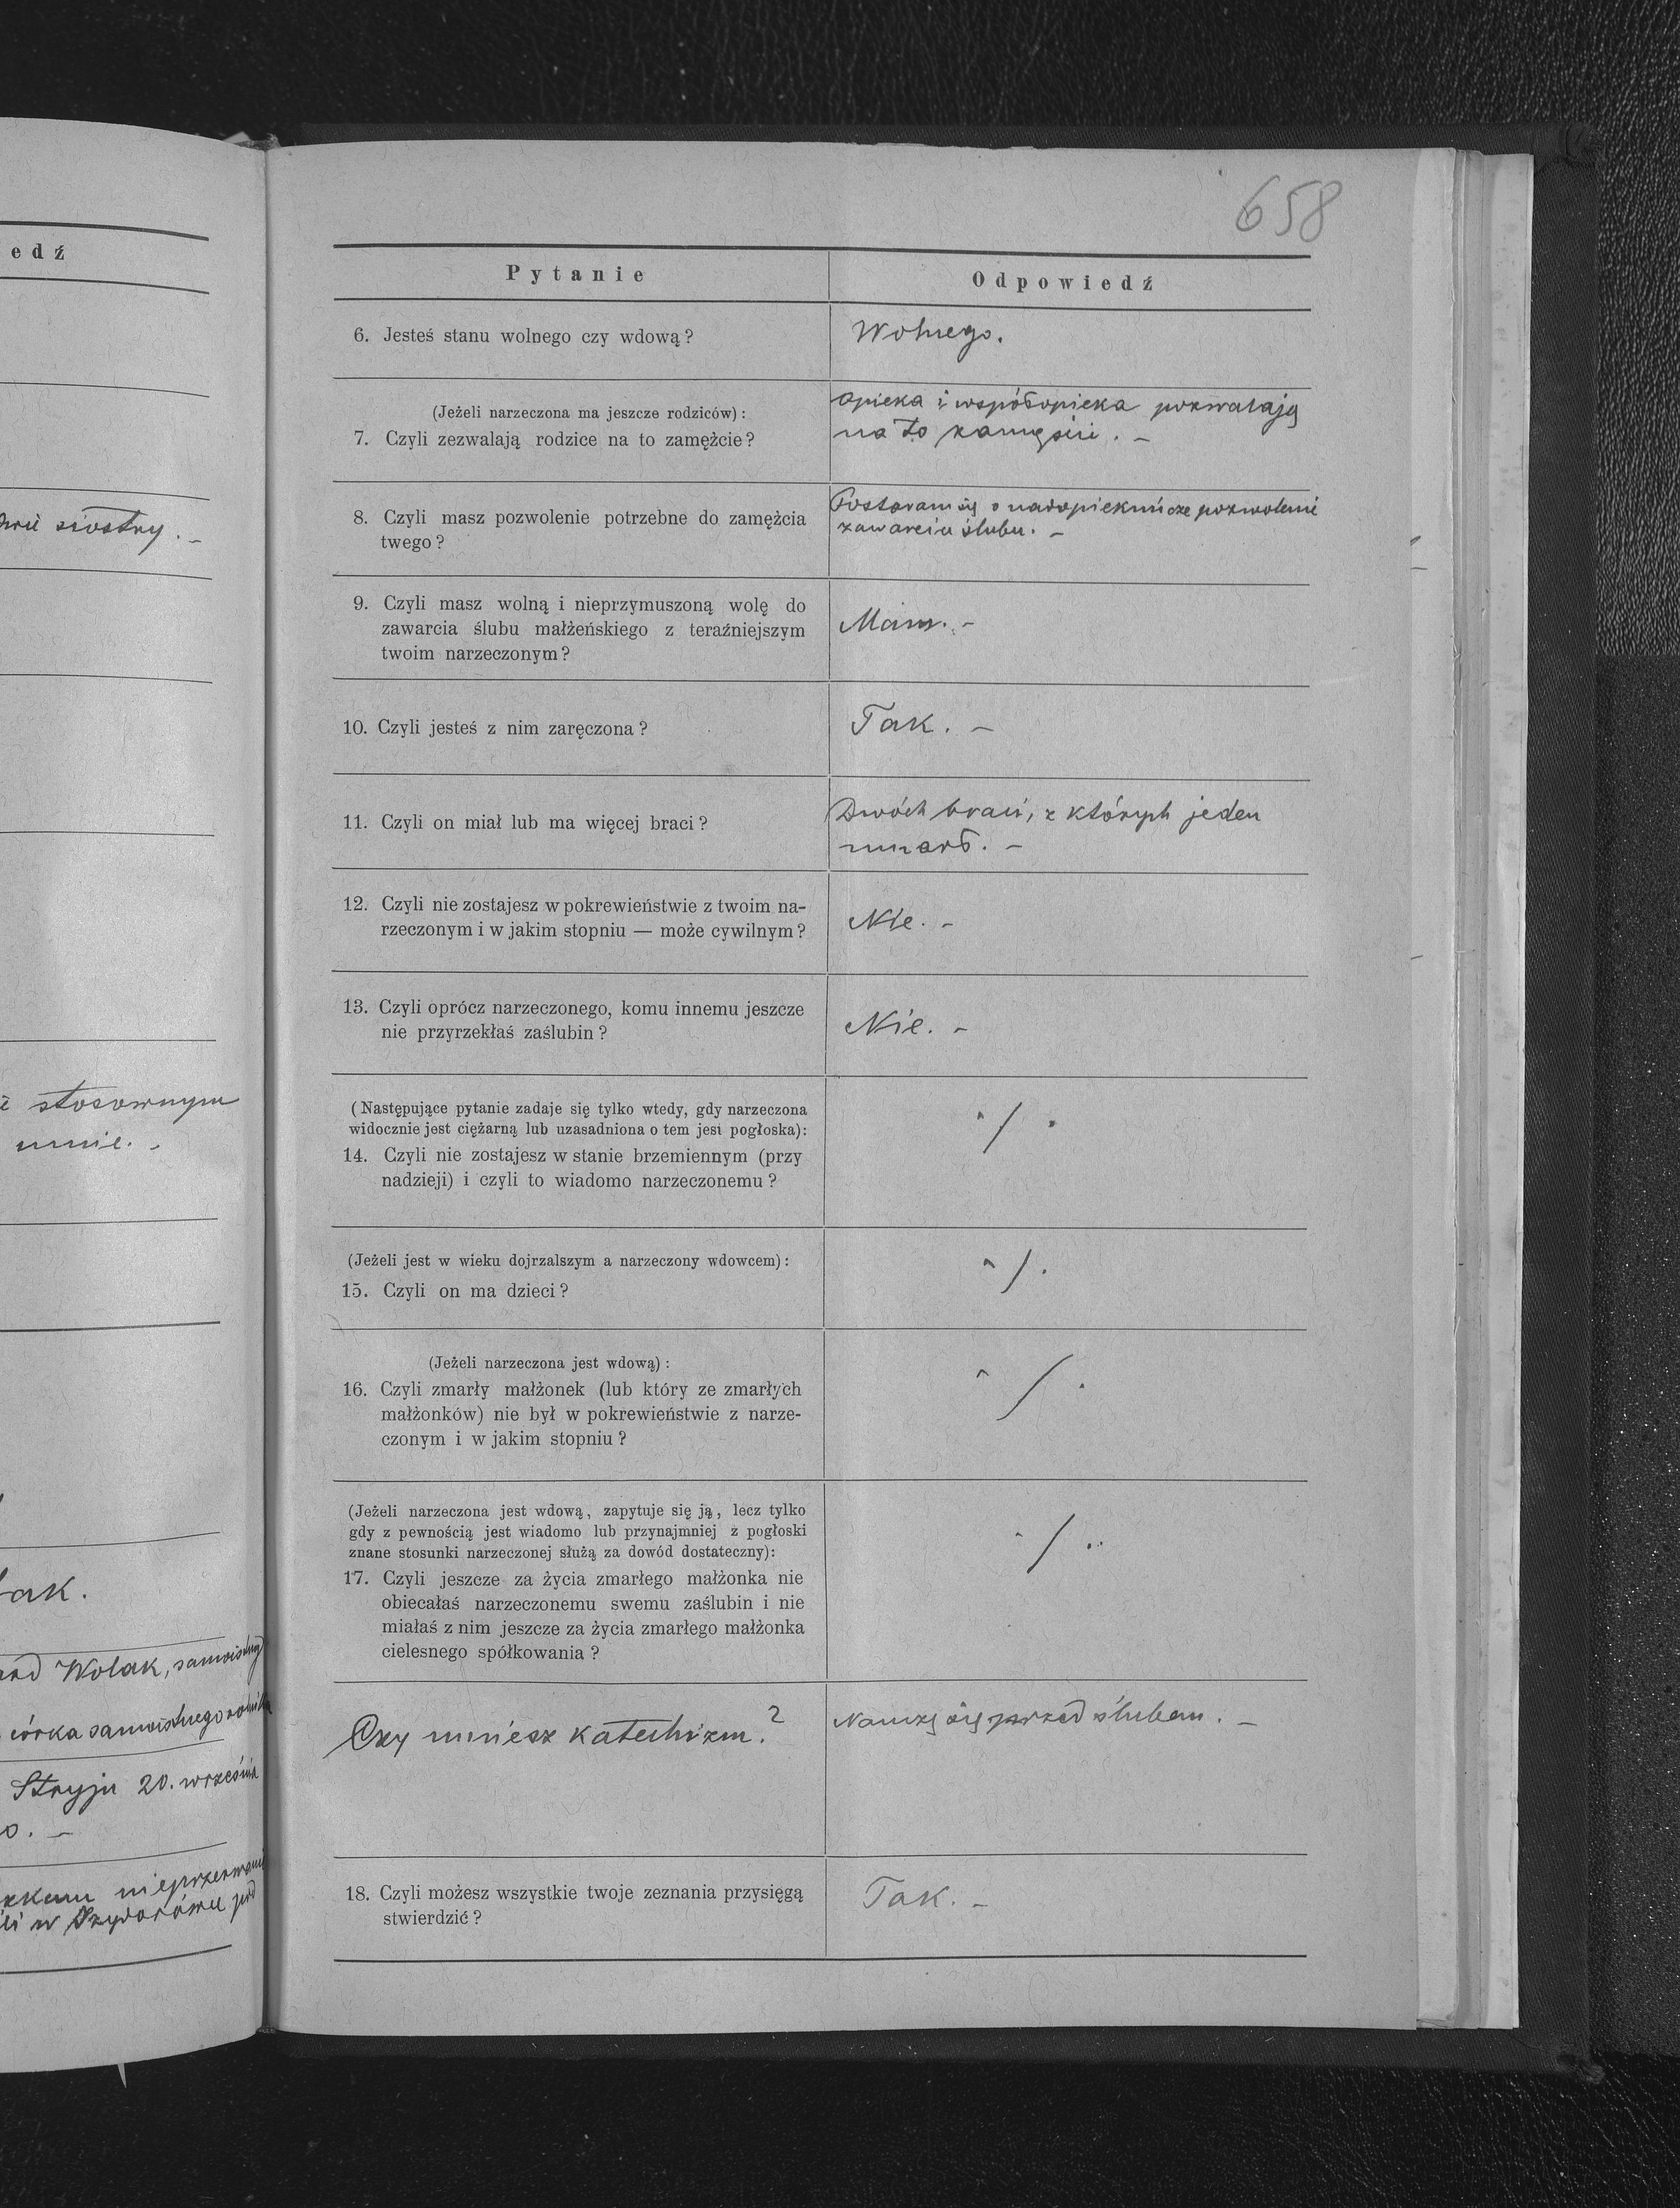 edź
dwie siostry. –
stosownym
mnie. –
Wolak, samoistny
córka samoistnego rolnika
Stryju 20. września
o. –
nieprzerwanie
w
658
Pytanie
Odpowiedź
6. Jesteś stanu wolnego czy wdową?
Wolnego.
(Jeżeli narzeczona ma jeszcze rodziców):
7. Czyli zezwalają rodzice na to zamężcie?
Opieka i współopieka pozwalają
na to zamęście. –
8. Czyli masz pozwolenie potrzebne do zamężcia
twego?
Postaram się o nadopiekuńcze pozwolenie
zawarcia ślubu. –
9. Czyli masz wolną i nieprzymuszoną wolę do
zawarcia ślubu małżeńskiego z teraźniejszym
twoim narzeczonym?
Mam. –
10. Czyli jesteś z nim zaręczona?
Tak. –
11. Czyli on miał lub ma więcej braci?
Dwóch braci, z których jeden
umarł. –
12. Czyli nie zostajesz w pokrewieństwie z twoim na-
rzeczonym i w jakim stopniu — może cywilnym?
Nie. –
13. Czyli oprócz narzeczonego, komu innemu jeszcze
nie przyrzekłaś zaślubin?
Nie. –
(Następujące pytanie zadaje się tylko wtedy, gdy narzeczona
widocznie jest ciężarną lub uzasadniona o tem jest pogłoska):
14. Czyli nie zostajesz w stanie brzemiennym (przy
nadzieji) i czyli to wiadomo narzeczonemu?
·/·
(Jeżeli jest w wieku dojrzalszym a narzeczony wdowcem):
15. Czyli on ma dzieci?
·/·
(Jeżeli narzeczona jest wdową):
16. Czyli zmarły małżonek (lub który ze zmarłych
małżonków) nie był w pokrewieństwie z narze-
czonym i w jakim stopniu?
·/·
(Jeżeli narzeczona jest wdową, zapytuje się ją, lecz tylko
gdy z pewnością jest wiadomo lub przynajmniej z pogłoski
znane stosunki narzeczonej służą za dowód dostateczny):
17. Czyli jeszcze za życia zmarłego małżonka nie
obiecałaś narzeczonemu swemu zaślubin i nie
miałaś z nim jeszcze za życia zmarłego małżonka
cielesnego spółkowania?
·/·
Czy umiesz katechizm?
Nauczę się przed ślubem. –
18. Czyli możesz wszystkie twoje zeznania przysięgą
stwierdzić?
Tak. –